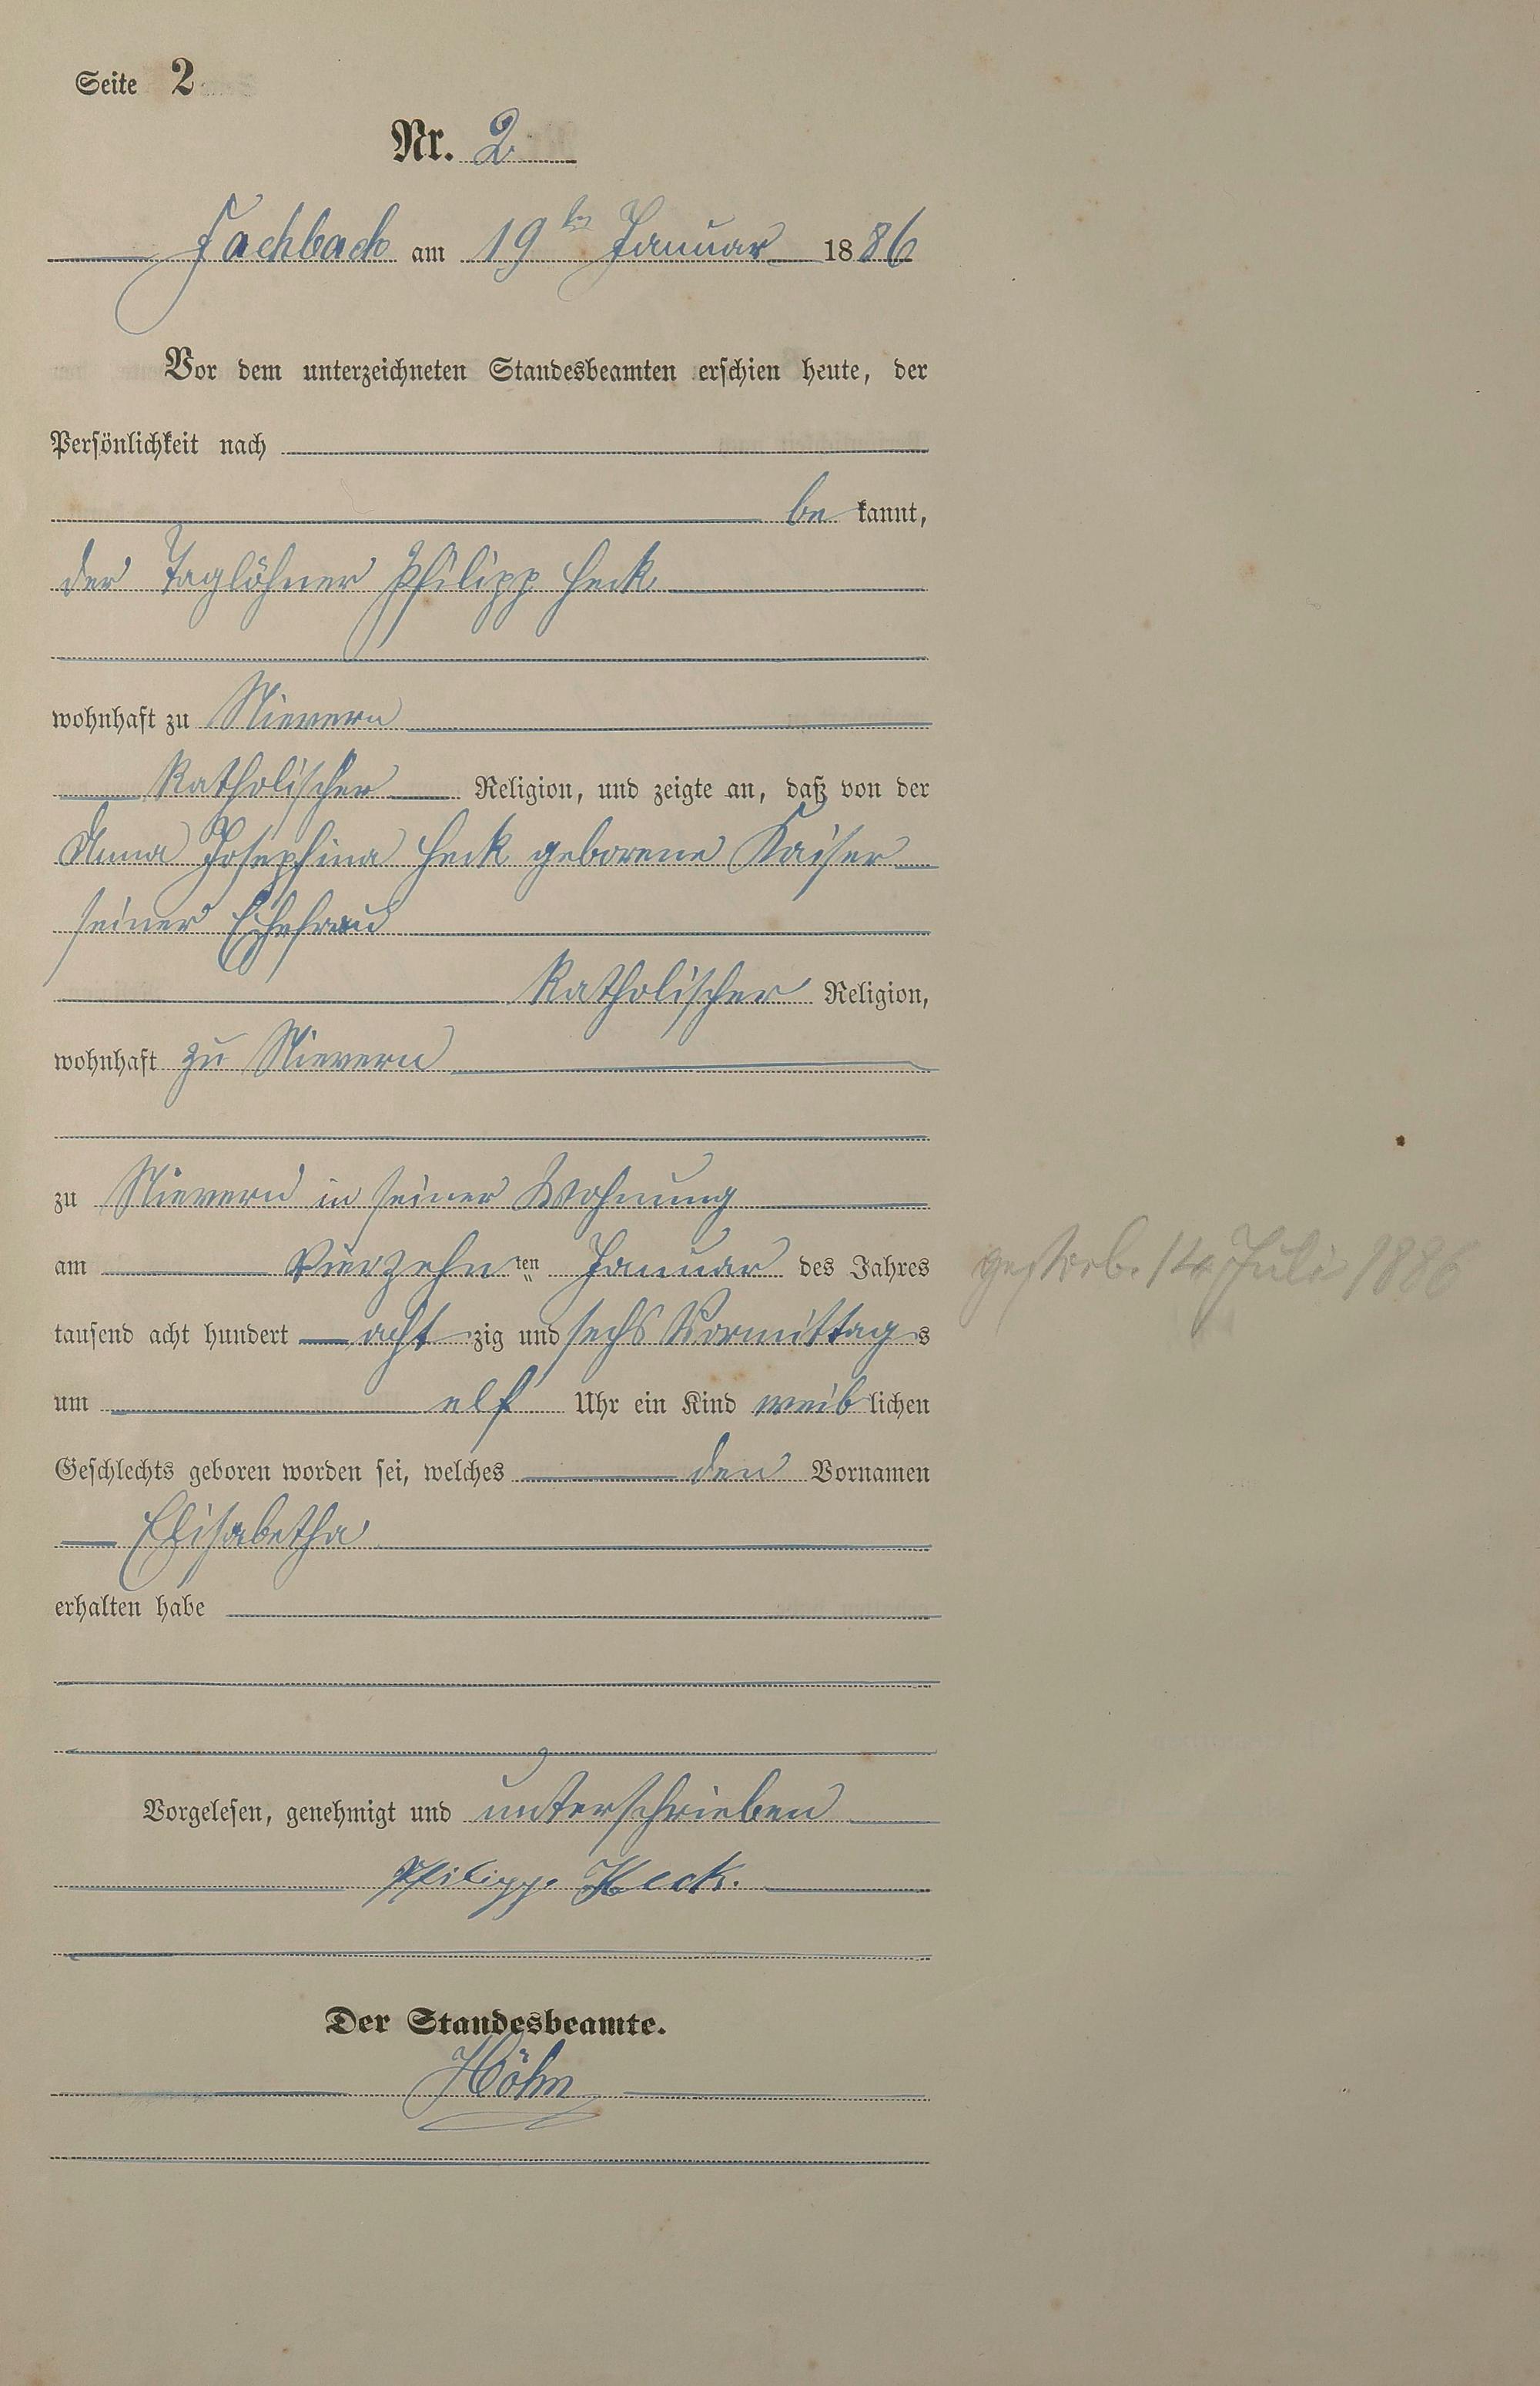 Seite 2
Nr. 2
Fachbach am 19ten Januar 1886
Vor dem unterzeichneten Standesbeamten erschien heute, der
Persönlichkeit nach
be kannt,
der Taglöhner Philipp Heck
wohnhaft zu Nievern
katholischer Religion, und zeigte an, daß von der
Anna Josephina Heck geborene Kaiser
seiner Ehefrau
katholischer Religion,
wohnhaft zu Nievern
zu Nievern in seiner Wohnung
am vierzehn ten Januar des Jahres
tausend acht hundert acht zig und sechs Vormittag s
um elf Uhr ein Kind weib lichen
Geschlechts geboren worden sei, welches den Vornamen
Elisabetha
erhalten habe
Vorgelesen, genehmigt und unterschrieben
Philipp. Heck.
Der Standesbeamte.
Höhn
gestorb. 14 Juli 1886